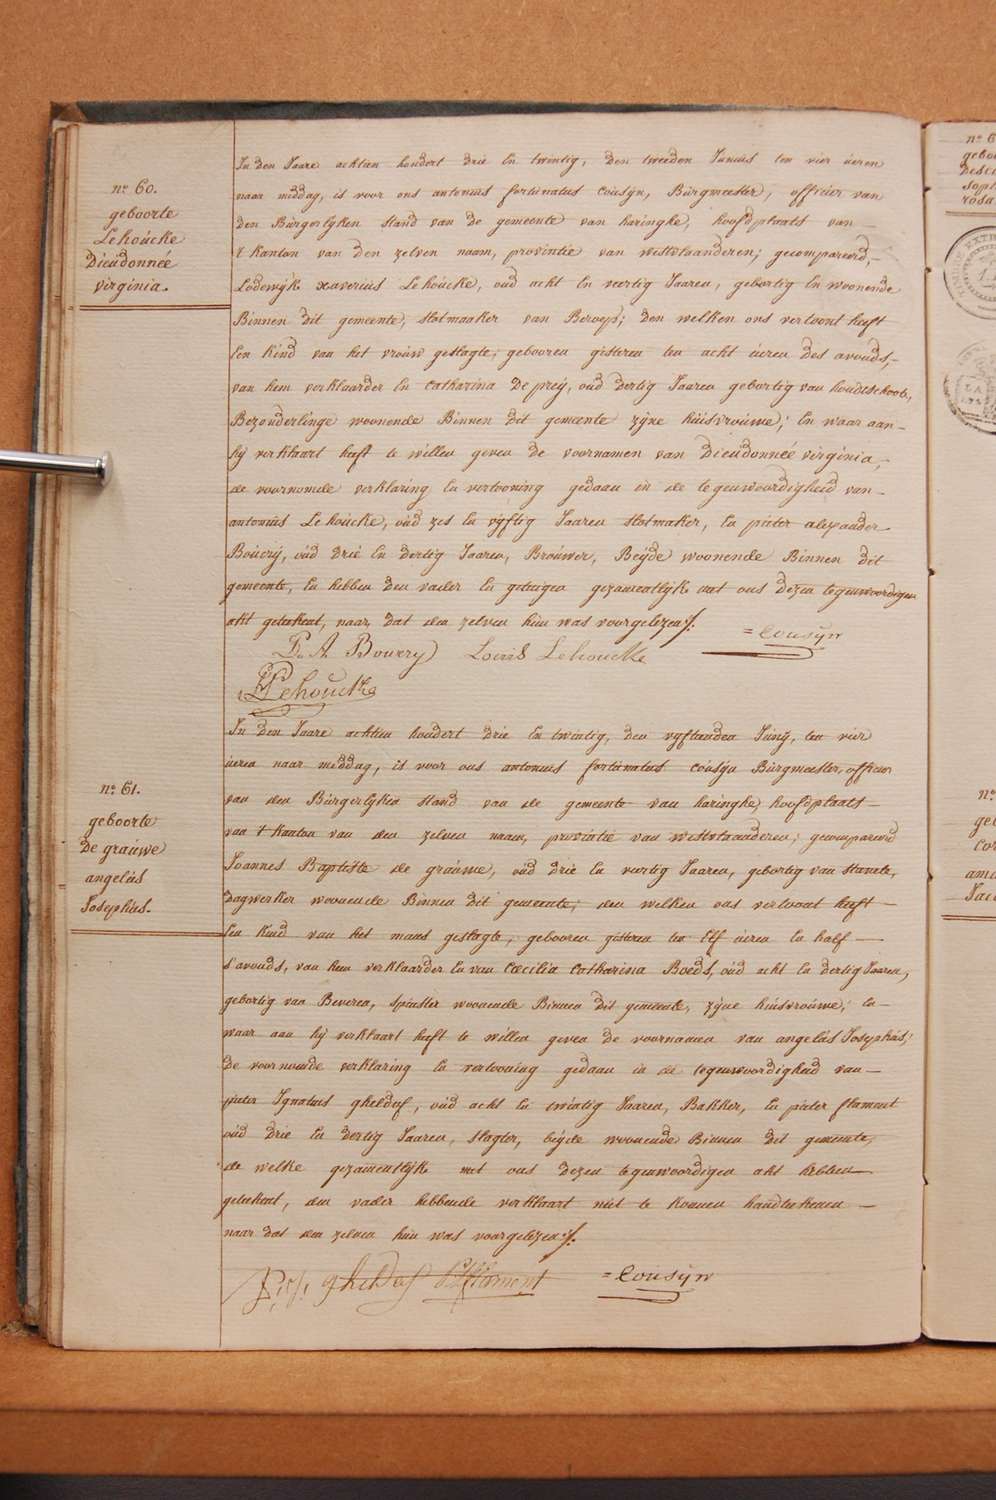 no. 60.
geboorte
Lehoùcke
Dieudonnée
virginia.
In den Jaare achtien hondert drie En twintig, den tweeden Junius ten vier ùeren
naar middag, is voor ons antonius fortùnatus Coùsyn, Bùrgmeester, officier van
den Bùrgerlyken stand van de gemeente van haringhe, hoofdplaats van
't kanton van den zelven naam, provintie van westvlaanderen; gecompareerd,
Lodewyk xaverius Lehoùcke, oùd acht En veertig Jaaren, gebortig En woonende
Binnen dit gemeente, stoelmaaker van Beroep; den welken ons vertoont heeft
Een kind van het vroùw geslagte, gebooren gisteren ten acht ùeren des avonds,
van hem verklaarder En Catharina De preÿ, oùd dertig Jaaren gebortig van hondtschoote,
Bezonderlinge woonende Binnen dit gemeente zÿne hùisvroùwe; En waar aan
hÿ verklaart heeft te willen geven de voornamen van Dieudonnée virginia,
de voornomde verklaring En vertooning gedaan in de tegenwoordigheid van
antonius Lehoùcke, oùd zes En vÿftig Jaaren stoelmaker, En pieter alexander
Boùvrÿ, oùd drie En dertig Jaaren, Broùwer, Beÿde woonende Binnen dit
gemeente, En hebben den vader En getuigen gezamentlÿk met ons dezen tegenwoordigen
akt geteekent, naar dat den zelven hùn was voorgelezen ./.
P. A. Bouvry Louis Lehoucke = Cousyn
Lehoucke
In den Jaare achtien hondert drie En twintig, den vÿftienden Jùnÿ, ten vier
ùeren naar middag, is voor ons antonius fortùnatus Coùsyn Bùrgmeester, officier
van den Bùrgerlÿken stand van de gemeente van haringhe, hoofdplaats
van 't kanton van den zelven naam, provintie van westvlaanderen; gecompareerd
no. 61.
geboorte
De graùwe
angelùs
Josephùs.
Joannes Baptiste de graùwe, oùd drie En veertig Jaaren, gebortig van Stavele,
Dagwerker woonende Binnen dit gemeente; den welken ons vertoont heeft
Een kind van het mans geslagte, gebooren gisteren ten Elf ùeren En half
s'avonds, van hem verklaarder En van Cœcilia Catharina Boeds, oùd acht En dertig Jaaren,
gebortig van Beveren, spinster woonende Binnen dit gemeente, zÿne hùisvroùwe; En
waar aan hÿ verklaart heeft te willen geven de voornamen van angelùs Josephùs;
De voornomde verklaring En vertooning gedaan in de tegenwoordigheid van
pieter Ignatius gheldof, oùd acht En twintig Jaaren, Bakker, En pieter flament
oùd drie En dertig Jaaren, slagter, beÿde woonende Binnen dit gemeente,
de welke gezamentlÿk met ons dezen tegenwoordigen akt hebben
geteekent, den vader hebbende verklaart niet te konnen handteekenen
naar dat den zelven hùn was voorgelezen ./.
gheldof flament = Cousyn